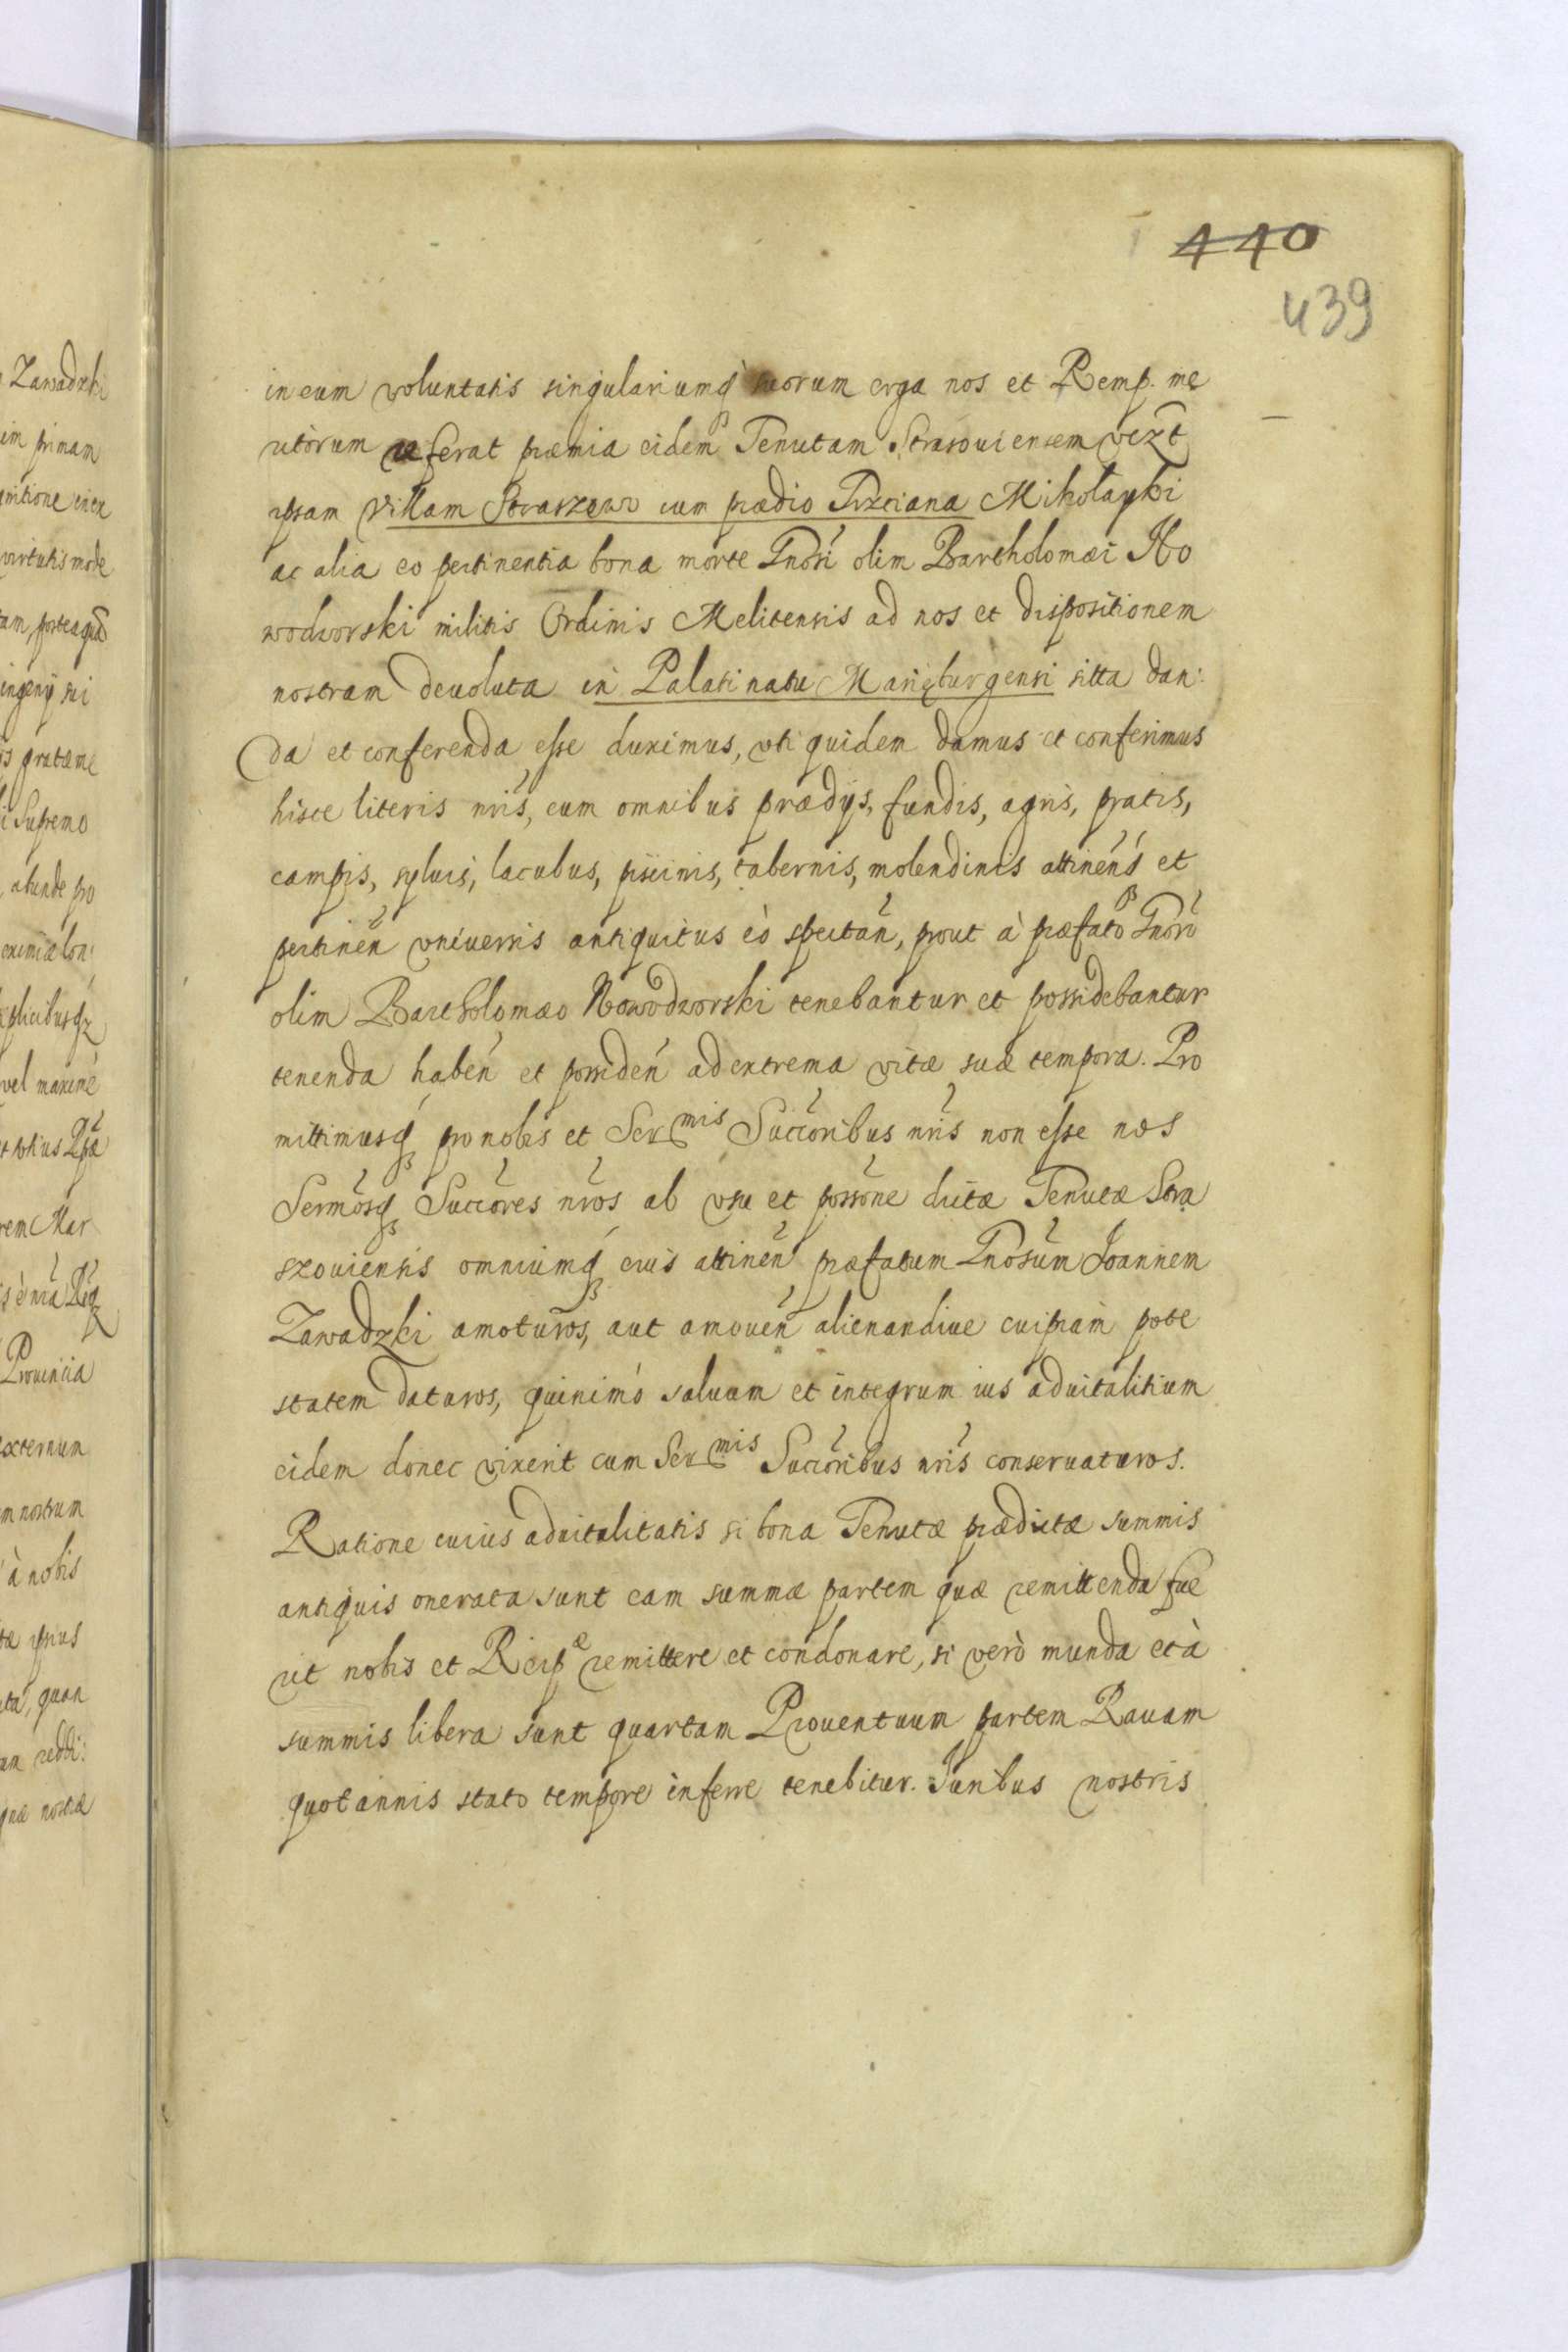 440
439
in eum voluntatis singulariumq́ suorum erga nos et Remp. me
ritorum referat præmia eidem Tenutam Strasouiensem vezt
ipsam Villam Straszewo cum prædio Trzciana Mikołayki
ac alia eo pertinentia bona morte Gnosi olim Bartholomæi No
wodworski militis Ordinis Melitensis ad nos et dispositionem
nostram deuoluta in Palatinatu Mariæburgensi sitta dan:
da et conferenda esse duximus, vti quidem damus et conferimus
hisce literis nrĩs, cum omnibus prædijs, fundis, agris, pratis,
campis, syluis, lacubus, piscinis, tabernis, molendinis attinenq́ et
pertineñ vniuersis antiquitus eò spectañ, prout à præfato Gnoso
olim Bartholomæo Nowodworski tenebantur et possidebantur
tenenda habeñ et possideñ ad extrema vitæ suæ tempora. Pro
mittimusq́ pro nobis et Ser mis Succoribus nrĩs non esse nos
Sermosq́ Succores nr̃os ab vsu et possõne dictæ Tenutæ Stra
szouiensis omniumq́ eius attineñ præfatum Gnosum Joannem
Zawadzki amoturos, aut amoueñ alienandiue cuipiam pote
statem daturos, quinimò saluum et integrum ius aduitalitium
eidem donec vixerit cum Ser mis Succoribus nrĩs conseruaturos.
Ratione cuius aduitalitatis si bona Tenutæ prædictæ summis
antiquis onerata sunt eam summæ partem quæ remittenda fue
rit nobis et Reip æ remittere et condonare, si verò munda et à
summis libera sunt quartam Prouentuum partem Rauam
quotannis stato tempore inferre tenebitur. Juribus nostris